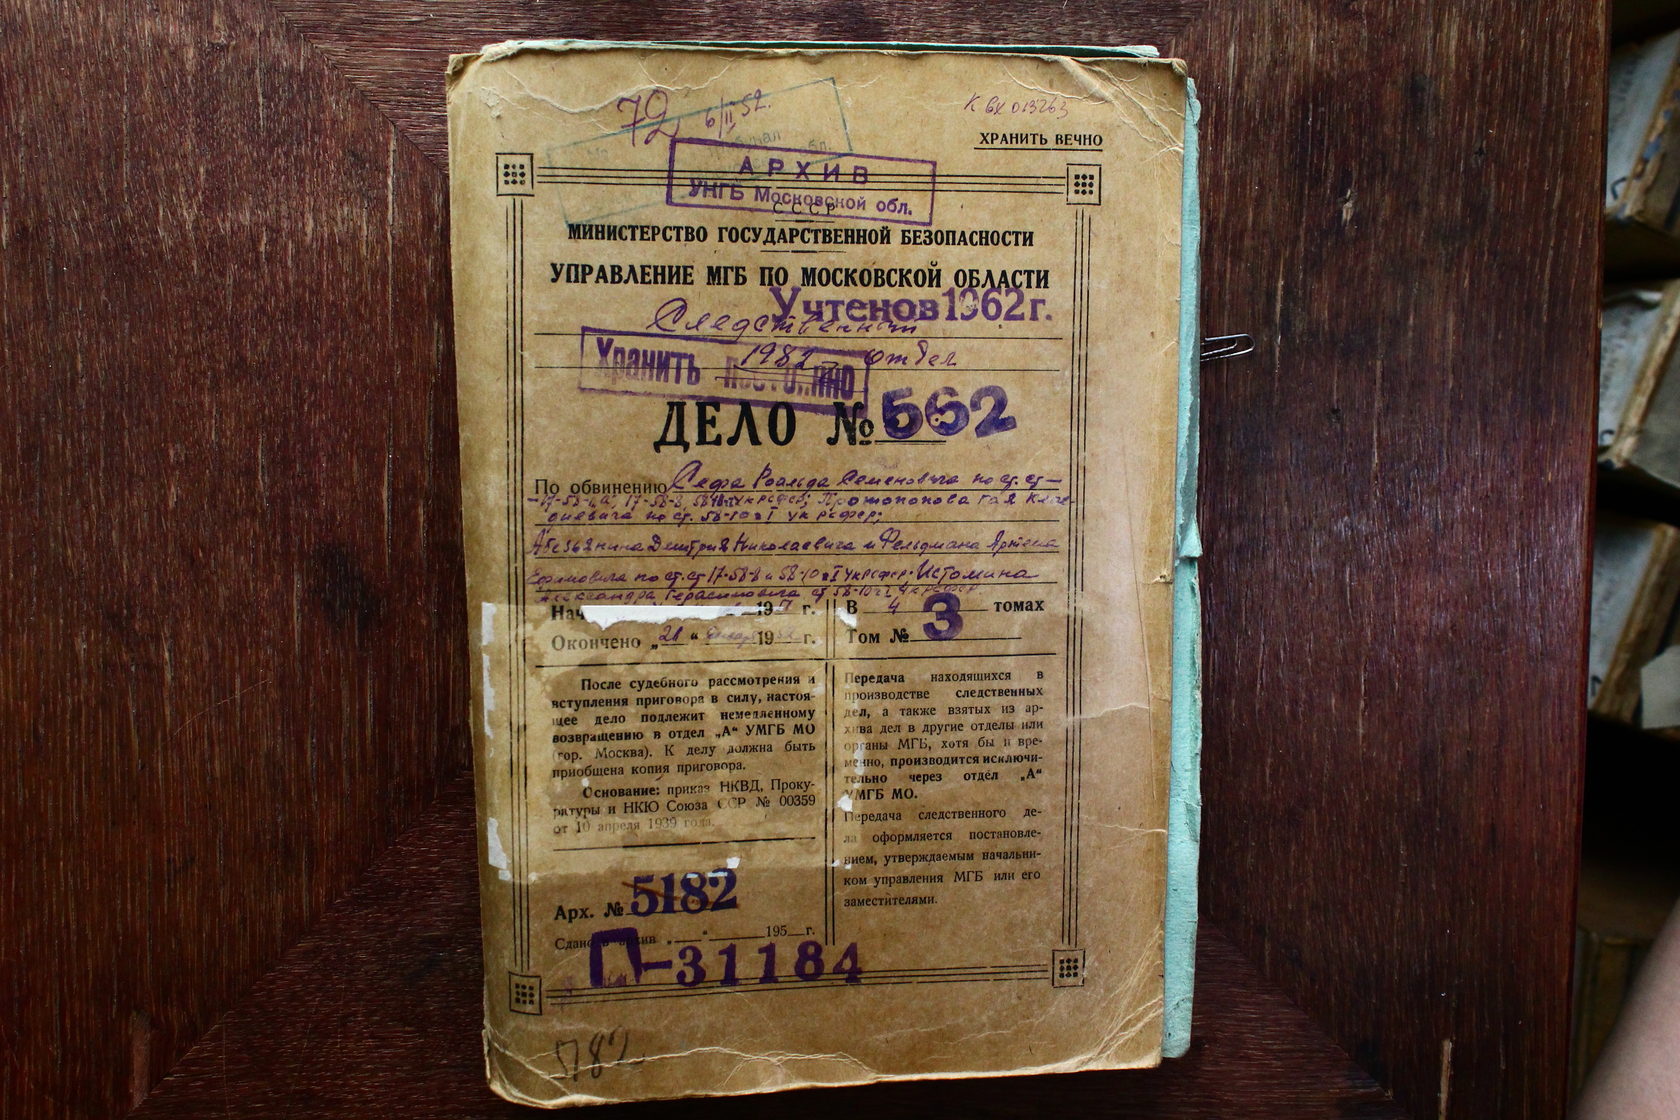 72
6/II 52.
К вх 013263
ХРАНИТЬ ВЕЧНО
АРХИВ
УНГБ Московской обл.
СССР
МИНИСТЕРСТВО ГОСУДАРСТВЕННОЙ БЕЗОПАСНОСТИ
УПРАВЛЕНИЕ МГБ ПО МОСКОВСКОЙ ОБЛАСТИ
Учтенов 1962 г.
Следственный
Хранить 1982 отдел
ДЕЛО № 562
По обвинению Сефа Роальда Семеновича по ст. ст –
Протопопова
по ст. 58-10 ч I ук рсфср;
Дмитрия Николаевича и Фельдмана Артема
Ефимовича по ст. ст 17-58-8 и 58-10 ч I ук рсфср. Истомина
Александра Герасимовича ст 58-10 ч I ук рсфср.
Нач 19 г. В 4 томах
Окончено „21 “ 19 г. Том № 3
После судебного рассмотрения и
вступления приговора в силу, настоя-
щее дело подлежит немедленному
возвращению в отдел „А“ УМГБ МО
(гор. Москва). К делу должна быть
приобщена копия приговора.
Основание: приказ НКВД, Проку-
ратуры и НКЮ Союза ССР № 00359
от 10 апреля 1939 года.
Передача находящихся в
производстве следственных
дел, а также взятых из ар-
хива дел в другие отделы или
органы МГБ, хотя бы и вре-
менно, производится исключи-
тельно через отдел „А“
УМГБ МО.
Передача следственного де-
ла оформляется постановле-
нием, утверждаемым начальни-
ком управления МГБ или его
заместителями.
Арх. № 5182
Сдано в архив „ “ 195 г.
П-31184
5182